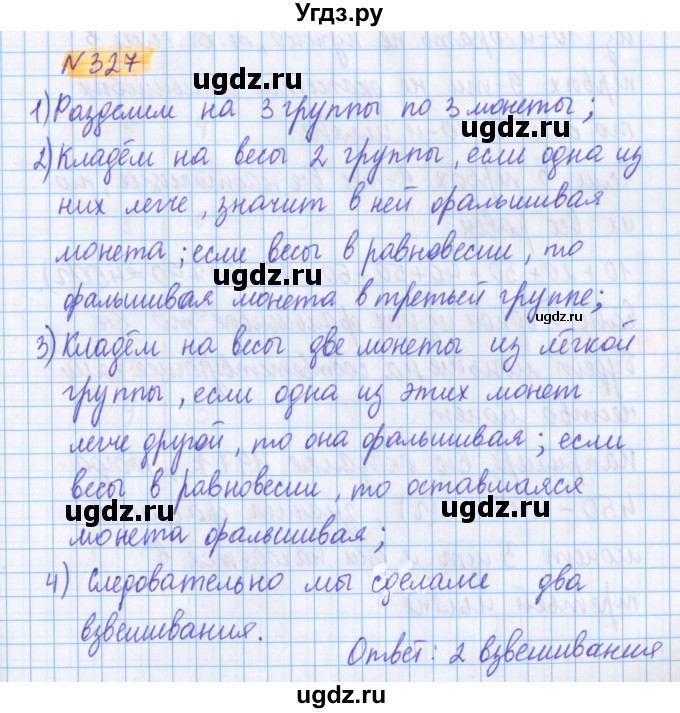 Угдз.ру
N 327
ugdz.ru
1) Разделим на 3 группы по 3 монеты;
ugdz.ru
2) Кладём на весы 2 группы, если одна из
них легче, значит в ней фальшивая
ugdz.ru
монета; если весы в равновесии, то
ugdz.ru
фальшивая монета в третьей группе;
ugdz.ru
3) Кладём на весы две монеты из лёгкой
группы, если одна из этих монет
легче другой, то она фальшивая; если
весы в равновесии, то оставшаяся
ugdz.ru ugdz.ru
монета фальшивая;
4) Следовательно мы сделали два
взвешивания.
Ответ: 2 взвешивания
ugdz.ru